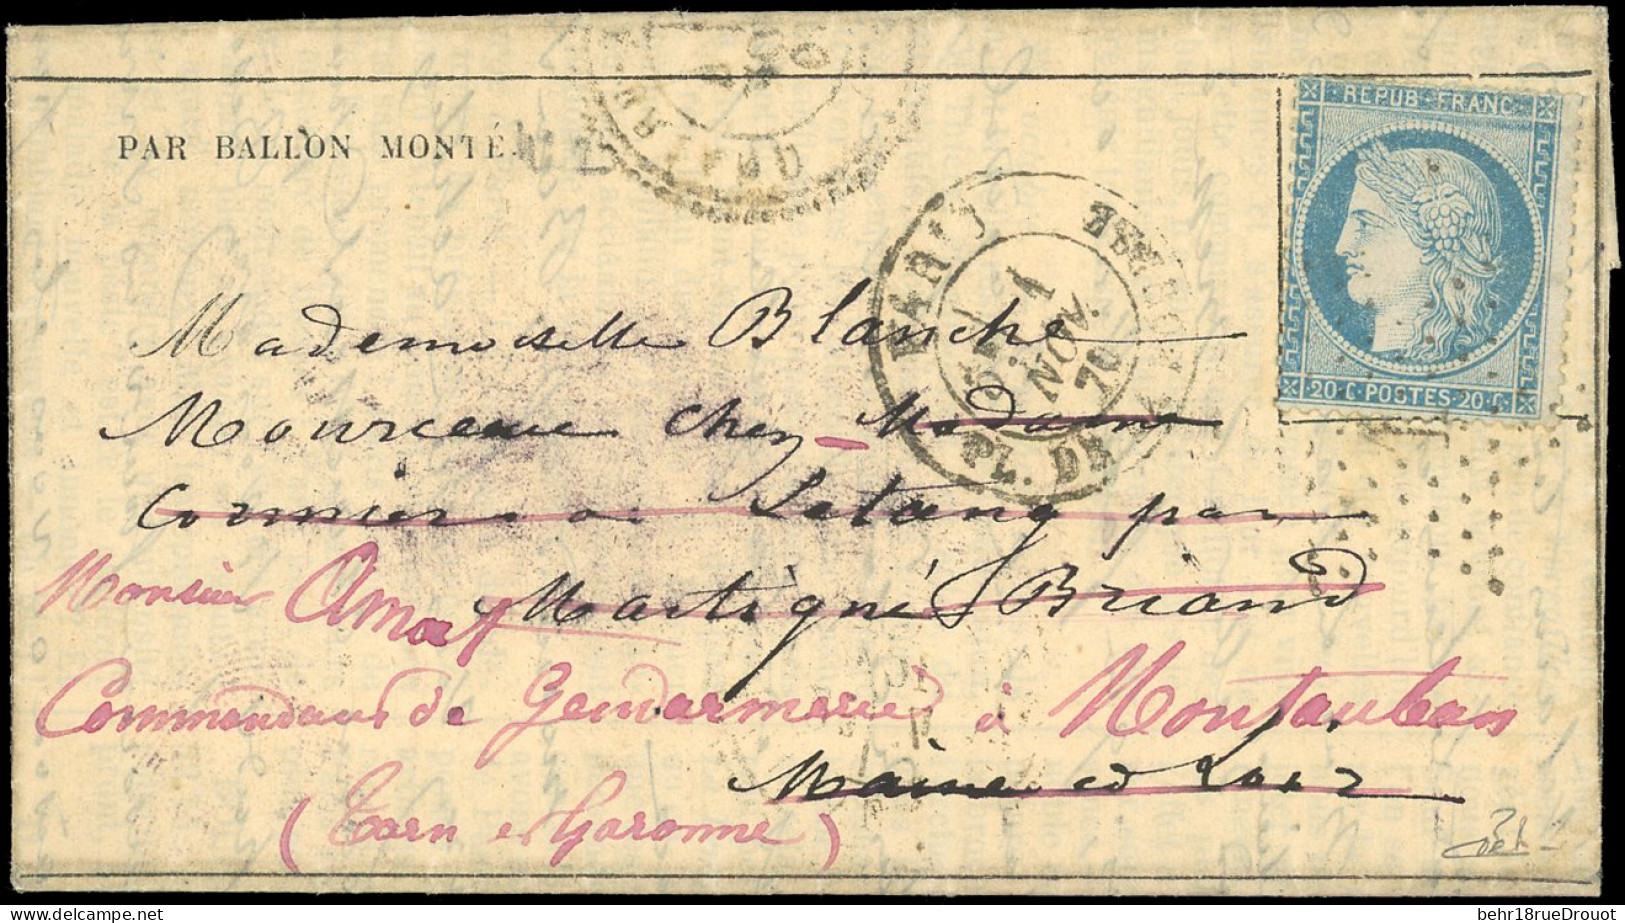 REPUB. FRANC.
PAR BALLON MONTÉ.
PARIS
PL. DE LA BOURSE
1
NOV.
70
20.C.POSTES.20.C
Mademoiselle Blanche
Mourceau chez Madame
Cormier a Letang par
Martigné Briand
Monsieur Amat
Commandant de Gendarmerie à Montauban
Maine et Loir
(Tarn et Garonne)
behr18rueDrouot
delcampe.net